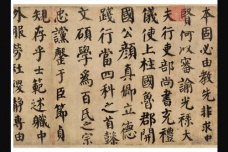 本固必由教先非求中
賢何以審諭光祿大
夫行吏部尚書充禮
儀使上柱國魯郡開
國公顏真卿立德
踐行當四科之首懿
文碩學為百氏之宗
忠讜罄于臣節貞
規存乎士範述職中
外服勞社稷靜專由